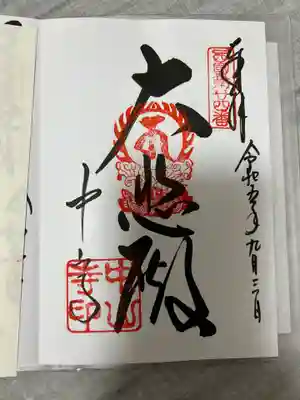 奉拝
西国第廿四番
令和五年九月二日
大悲殿
中山寺
中山寺印